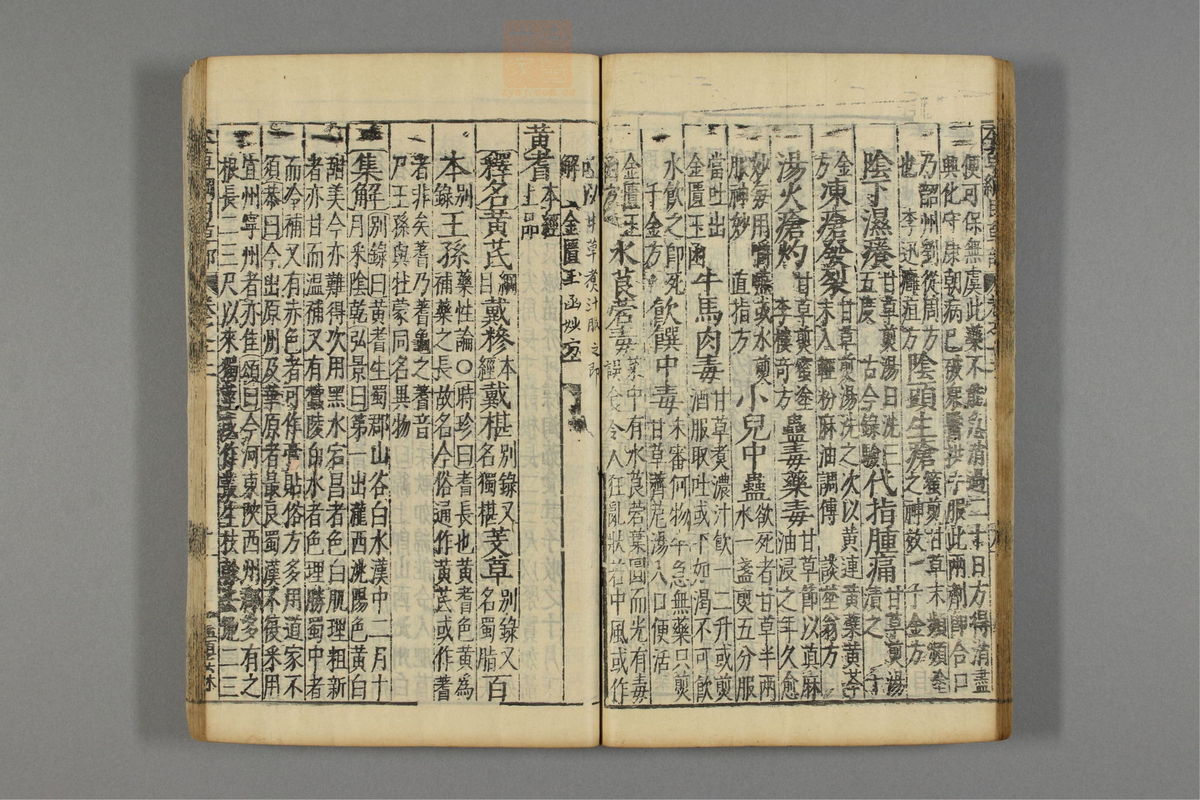 便可保無虞此藥不能急消過二十日方得消盡
興化守康朝病已破衆醫拱手服此兩劑即合口
乃韶州劉從周方
也李迅癰疽方
陰頭生瘡蜜煎甘草末頻頻塗之神效千金方
陰下濕癢甘草煎湯日洗三五度古今錄驗
代指腫痛甘草煎湯漬之千金方
凍瘡發裂甘草煎湯洗之次以黃連黃蘗黃芩末入輕粉麻油調傅談埜翁方
湯火瘡灼甘草煎蜜塗李樓奇方
蠱毒藥毒甘草節以真麻油浸之年久愈妙每用嚼嚥或水煎服神妙直指方
小兒中蠱欲死者甘草半兩水一盞煎五分服當吐出金匱玉函
牛馬肉毒甘草煮濃汁飲一二升或煎酒服取吐或下如渴不可飲水飲之即死千金方
飲饌中毒未審何物卒急無藥只煎甘草薺苨湯入口便活金匱玉函方
水莨菪毒菜中有水莨菪葉圓而光有毒誤食令人狂亂狀若中風或作吐以甘草煮汁服之即
解金匱玉函妙方
黃耆本經上品
釋名黃芪綱目戴糝本經戴椹別錄又名獨椹芰草別錄又名蜀脂百
本別錄王孫藥性論○時珍曰耆長也黃耆色黃為補藥之長故名今俗通作黃芪或作蓍
者非矣蓍乃蓍龜之蓍音
尸王孫與牡蒙同名異物
集解別錄曰黃耆生蜀郡山谷白水漢中二月十月采陰乾弘景曰第一出隴西洮陽色黃白
甜美今亦難得次用黑水宕昌者色白肌理粗新
者亦甘而溫補又有蠶陵白水者色理勝蜀中者
而冷補又有赤色者可作膏貼俗方多用道家不
須恭曰今出原州及華原者最良蜀漢不復采用
宜州寧州者亦佳頌曰今河東陝西州郡多有之
根長二三尺以來獨莖或作叢生枝幹去地二三